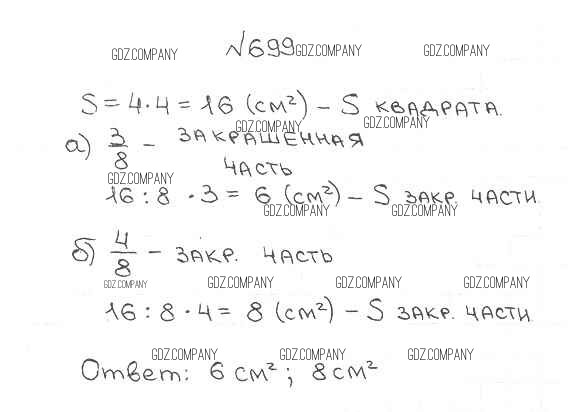 №699
GDZ.COMPANY GDZ.COMPANY GDZ.COMPANY
S = 4 · 4 = 16 (см²) – S КВАДРАТА.
GDZ.COMPANY GDZ.COMPANY
а) 3/8 – ЗАКРАШЕННАЯ
ЧАСТЬ
GDZ.COMPANY
16 : 8 · 3 = 6 (см²) – S ЗАКР. ЧАСТИ
GDZ.COMPANY GDZ.COMPANY
б) 4/8 – ЗАКР. ЧАСТЬ
GDZ.COMPANY GDZ.COMPANY GDZ.COMPANY GDZ.COMPANY
16 : 8 · 4 = 8 (см²) – S ЗАКР. ЧАСТИ.
GDZ.COMPANY GDZ.COMPANY GDZ.COMPANY
Ответ: 6 см²; 8 см²